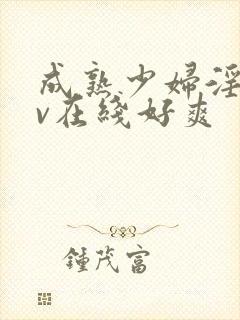 成熟少婦淫
v在綫好爽
鍾茂富